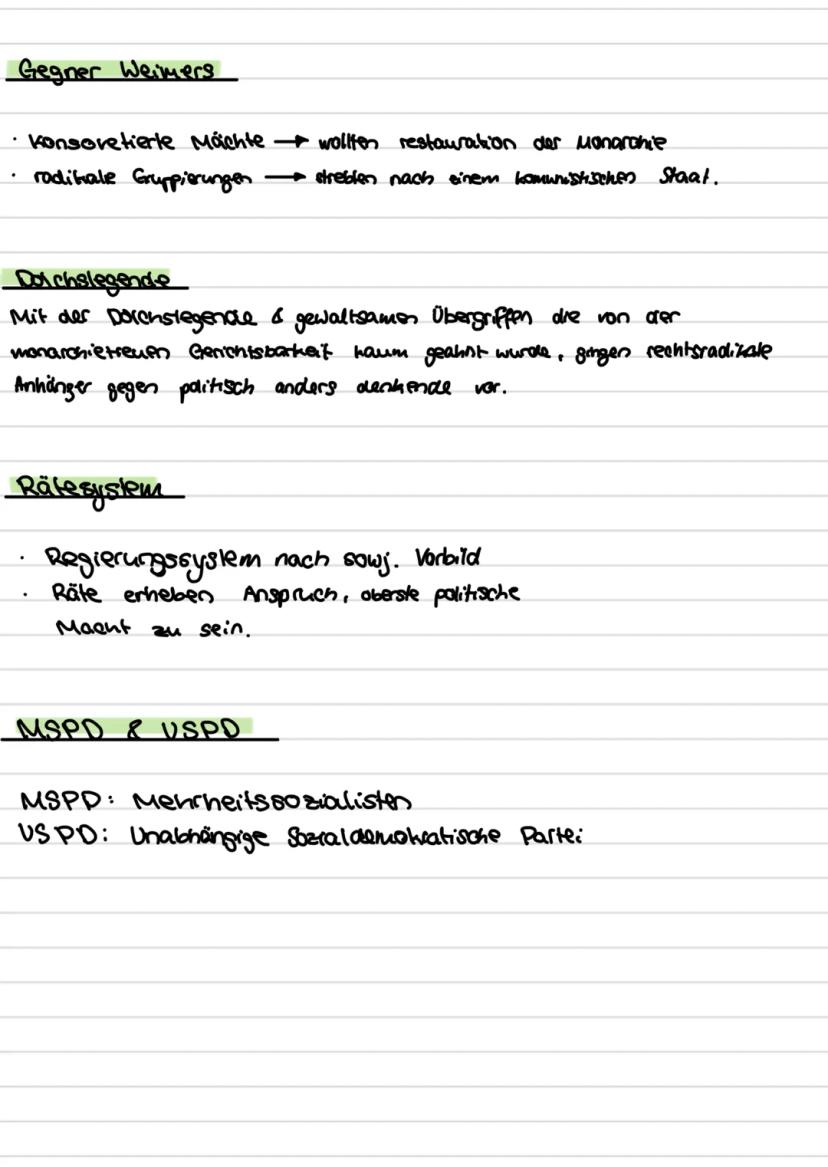 Gegner Weimers
· Konservetierte Mächte → wollten restauration der Monarchie
· radikale Gruppierungen → strebten nach einem komunistischen Staat.
Dolchslegende
Mit der Dolchslegende & gewaltsamen Übergriffen die von der
monarchietreuen Gerichtsbarkeit kaum geahnt wurde, gingen rechtsradikale
Anhänger gegen politisch anders denkende vor.
Rätesystem
· Regierungssystem nach sowj. Vorbild
· Räte erheben Anspruch, oberste politische
Macht zu sein.
MSPD & USPD
MSPD: Mehrheitssozialisten
USPD: Unabhängige Sozialdemokratische Partei